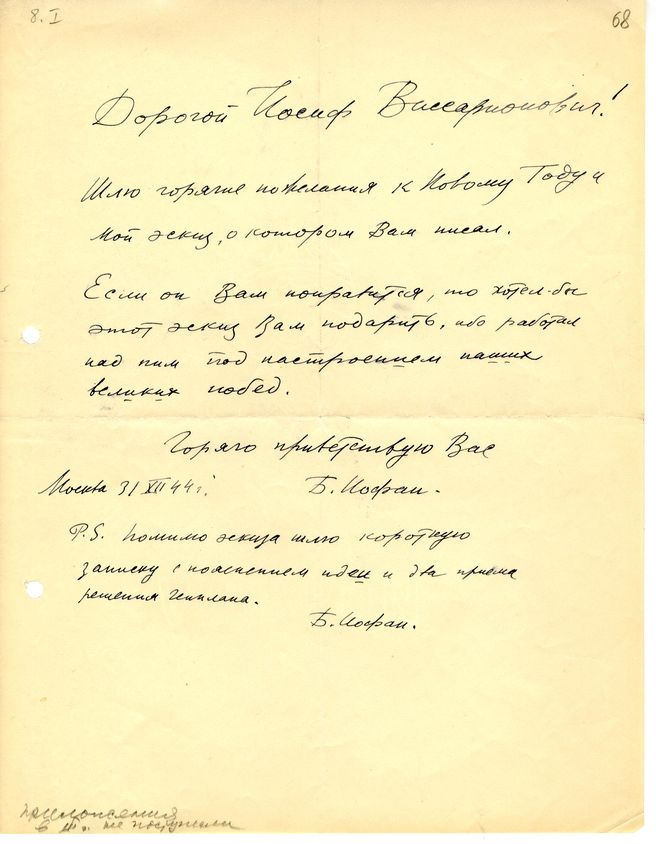 8.I
68
Дорогой Иосиф Виссарионович!
Шлю горячие пожелания к Новому Году и
мой эскиз, о котором Вам писал.
Если он Вам понравится, то хотел-бы
этот эскиз Вам подарить, ибо работал
над ним под настроением наших
великих побед.
Горячо приветствую Вас
Москва 31 XII 44 г.
Б. Иофан.
P.S. Помимо эскиза шлю короткую
записку с пояснением идеи и два приема
решения генплана.
Б. Иофан.
Приложения
в не поступали